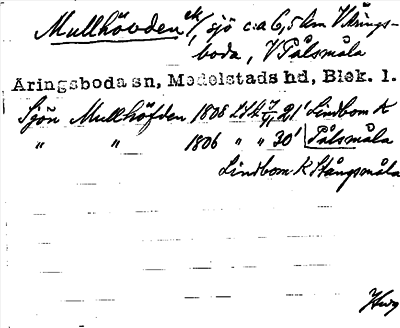 Mullhövden ek/, sjö c:a 6,5 km V Årings-
boda, V Pålsmåla
Aringsboda sn, Medelstads hd, Blek. l.
Sjön Mullhöfden 1808 21' Lindbom K
" " 1806 " " 30' Pålsmåla
Lindbom K Stångsmåla